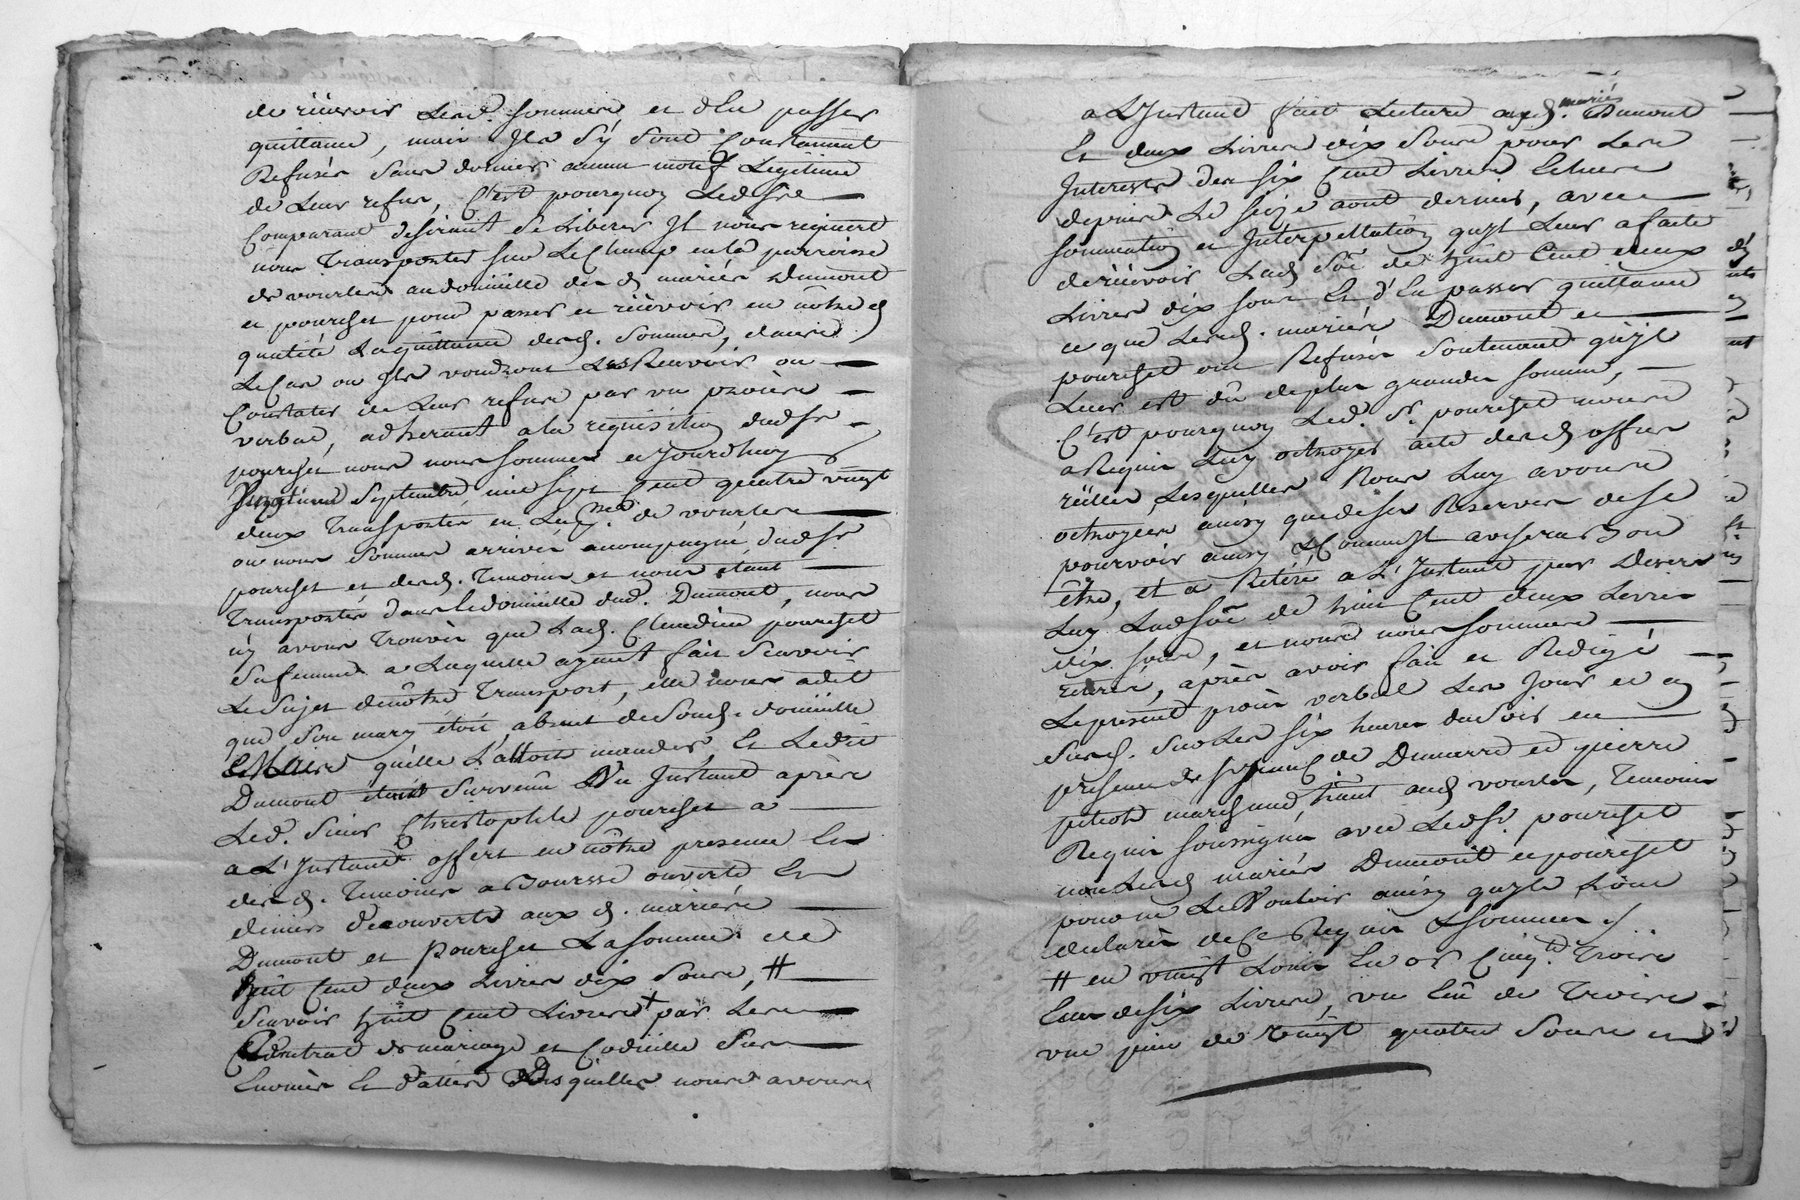 de reçevoir Lesd. Sommes et d'En passer
quittance, mais Ils S'y Sont Constament
Refusés Sans donner aucun motif Légitime
de Leur refus, C'est pourquoy Ledsr
Comparant desirant Se Liberer Il nous requiert
nous Transporter sur Le Champ en la parroisse
de vourles au domicille des d mariés Dumont
et pourchet pour passer et reçevoir en nôtre d
qualité La quittance desd. Sommes, dans
Le Cas ou Ils voudront Les Recevoir ou
Constater de Leur refus par un procès
verbal, adherant a la requisition dudsr
pourchet nous nous Sommes ce Jourdhuy
Septembre mil Sept Cent quatre vingt
deux Transportés en de vourles
ou nous Sommes arrivés accompagné dudsr
pourchet et desd. Temoins et nous étant
Transportés dans le domicille dud. Dumont, nous
n'y avons Trouvés que Lad. Claudine pourchet
Sa femme a Laquelle ayant fait Scavoir
Le Sujet de nôtre Transport, elle nous a dit
que Son mary étoit absent de Sond. domicille
qu'elle L'alloit mander, Et Ledit
Dumont étant Survenu Un Instant après
Led. Sieur Christophle pourchet a
a L'Instant offert en nôtre presence Et
desd. Temoins a Bourse ouverte Et
deniers découverts aux d. mariés
Dumont et Pourchet La Somme de
huit Cent deux Livres dix Sous, #
Scavoir huit Cent Livres + par Les
Contrat de mariage et Codicille Sus
Enoncés Et dattés Desquelles nous avons
a L'Instant fait Lecture auxd. mariés Dumont
Et deux Livres dix Sous pour Les
Interests des Six Cent Livres Echus
depuis Le Seize aout dernier, avec
Sommation et Interpellation qu'il Leur a faite
de reçevoir Lad Soe de huit Cent deux
Livres dix Sous Et d'En passer quittance
ce que Lesd. mariés Dumont et
pourchet ont Refusés Soutenant qu'il
Leur est dû de plus grandes Sommes,
C'est pourquoy Led. Sr. pourchet nous
a Requis Luy octroyer acte desd offres
réelles Lesquelles Nous Luy avons
octroyées ainsy que de ses Reserves de Se
pourvoir ainsy & Comme Il avisera Bon
être, et a Retiré a L'Instant par Devers
Luy Lad Soe de huit Cent deux Livres
dix Sous, et nous nous Sommes
retirés, après avoir fait et Redigé
Le présent procès verbal Les Jour et an
Susd. Sur Les Six heures du Soir en
présence de françois Dumarre et pierre
pitiot marchand, hant aud vourles, Temoins
Requis Soussignés avec Ledsr. pourchet
non Lesd mariés Dumont et pourchet
pour ne Le Vouloir ainsy qu'ils L'ont
declarés de Ce Requis & Sommés ./
# en vingt Louis En or Cinq Trois
Ecus de Six Livres, un Ecû de Trois
une piece de vingt quatre Sous et